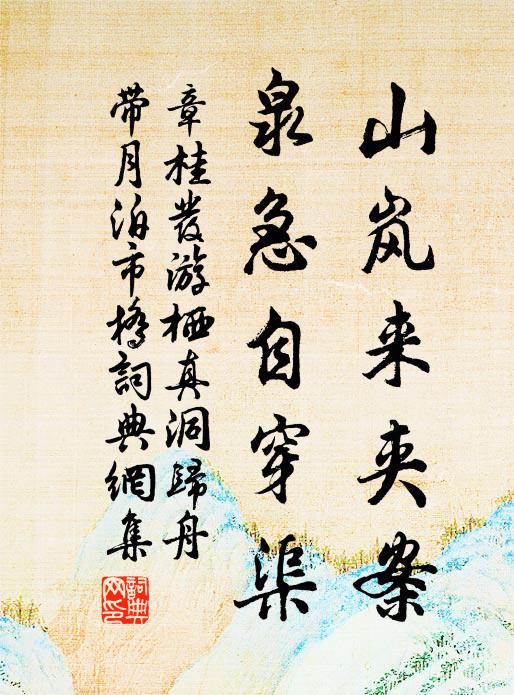 山岚来夹案
泉急自穿渠
章桂发游栖真洞歸舟
带月泊市橋詞典網集
詞典
网印